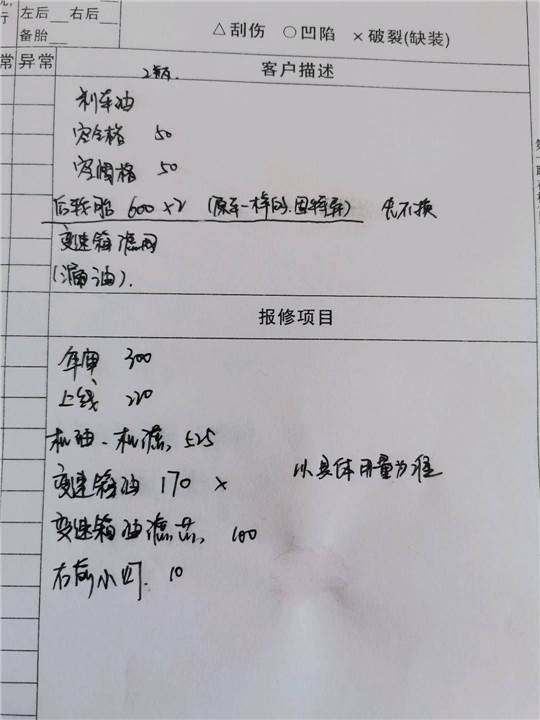 左后__右后__
备胎__
△刮伤 ○凹陷 ×破裂(缺装)
常 异常 客户描述
2瓶.
刹车油
空全格 50
空调格 50
后轮胎 600×2 (原车一样的.固特异) 先不换
变速箱滤网
(漏油).
报修项目
年审 300
上线 220
机油.机滤, 525
变速箱油 170 × 以具体用量为准
变速箱油滤芯, 100
右前小灯. 10